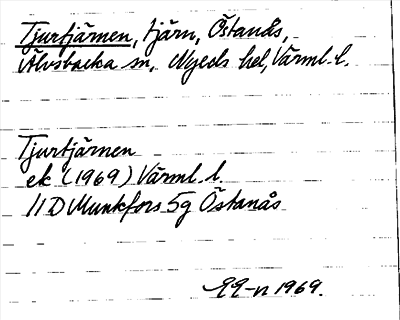 Tjurtjärnen, tjärn, Östanås,
Älvsbacka sn, Nyeds hd, Värml. l.
Tjurtjärnen
ek (1969) Värml. l.
11 D Munkfors 5g Östanås
1969.